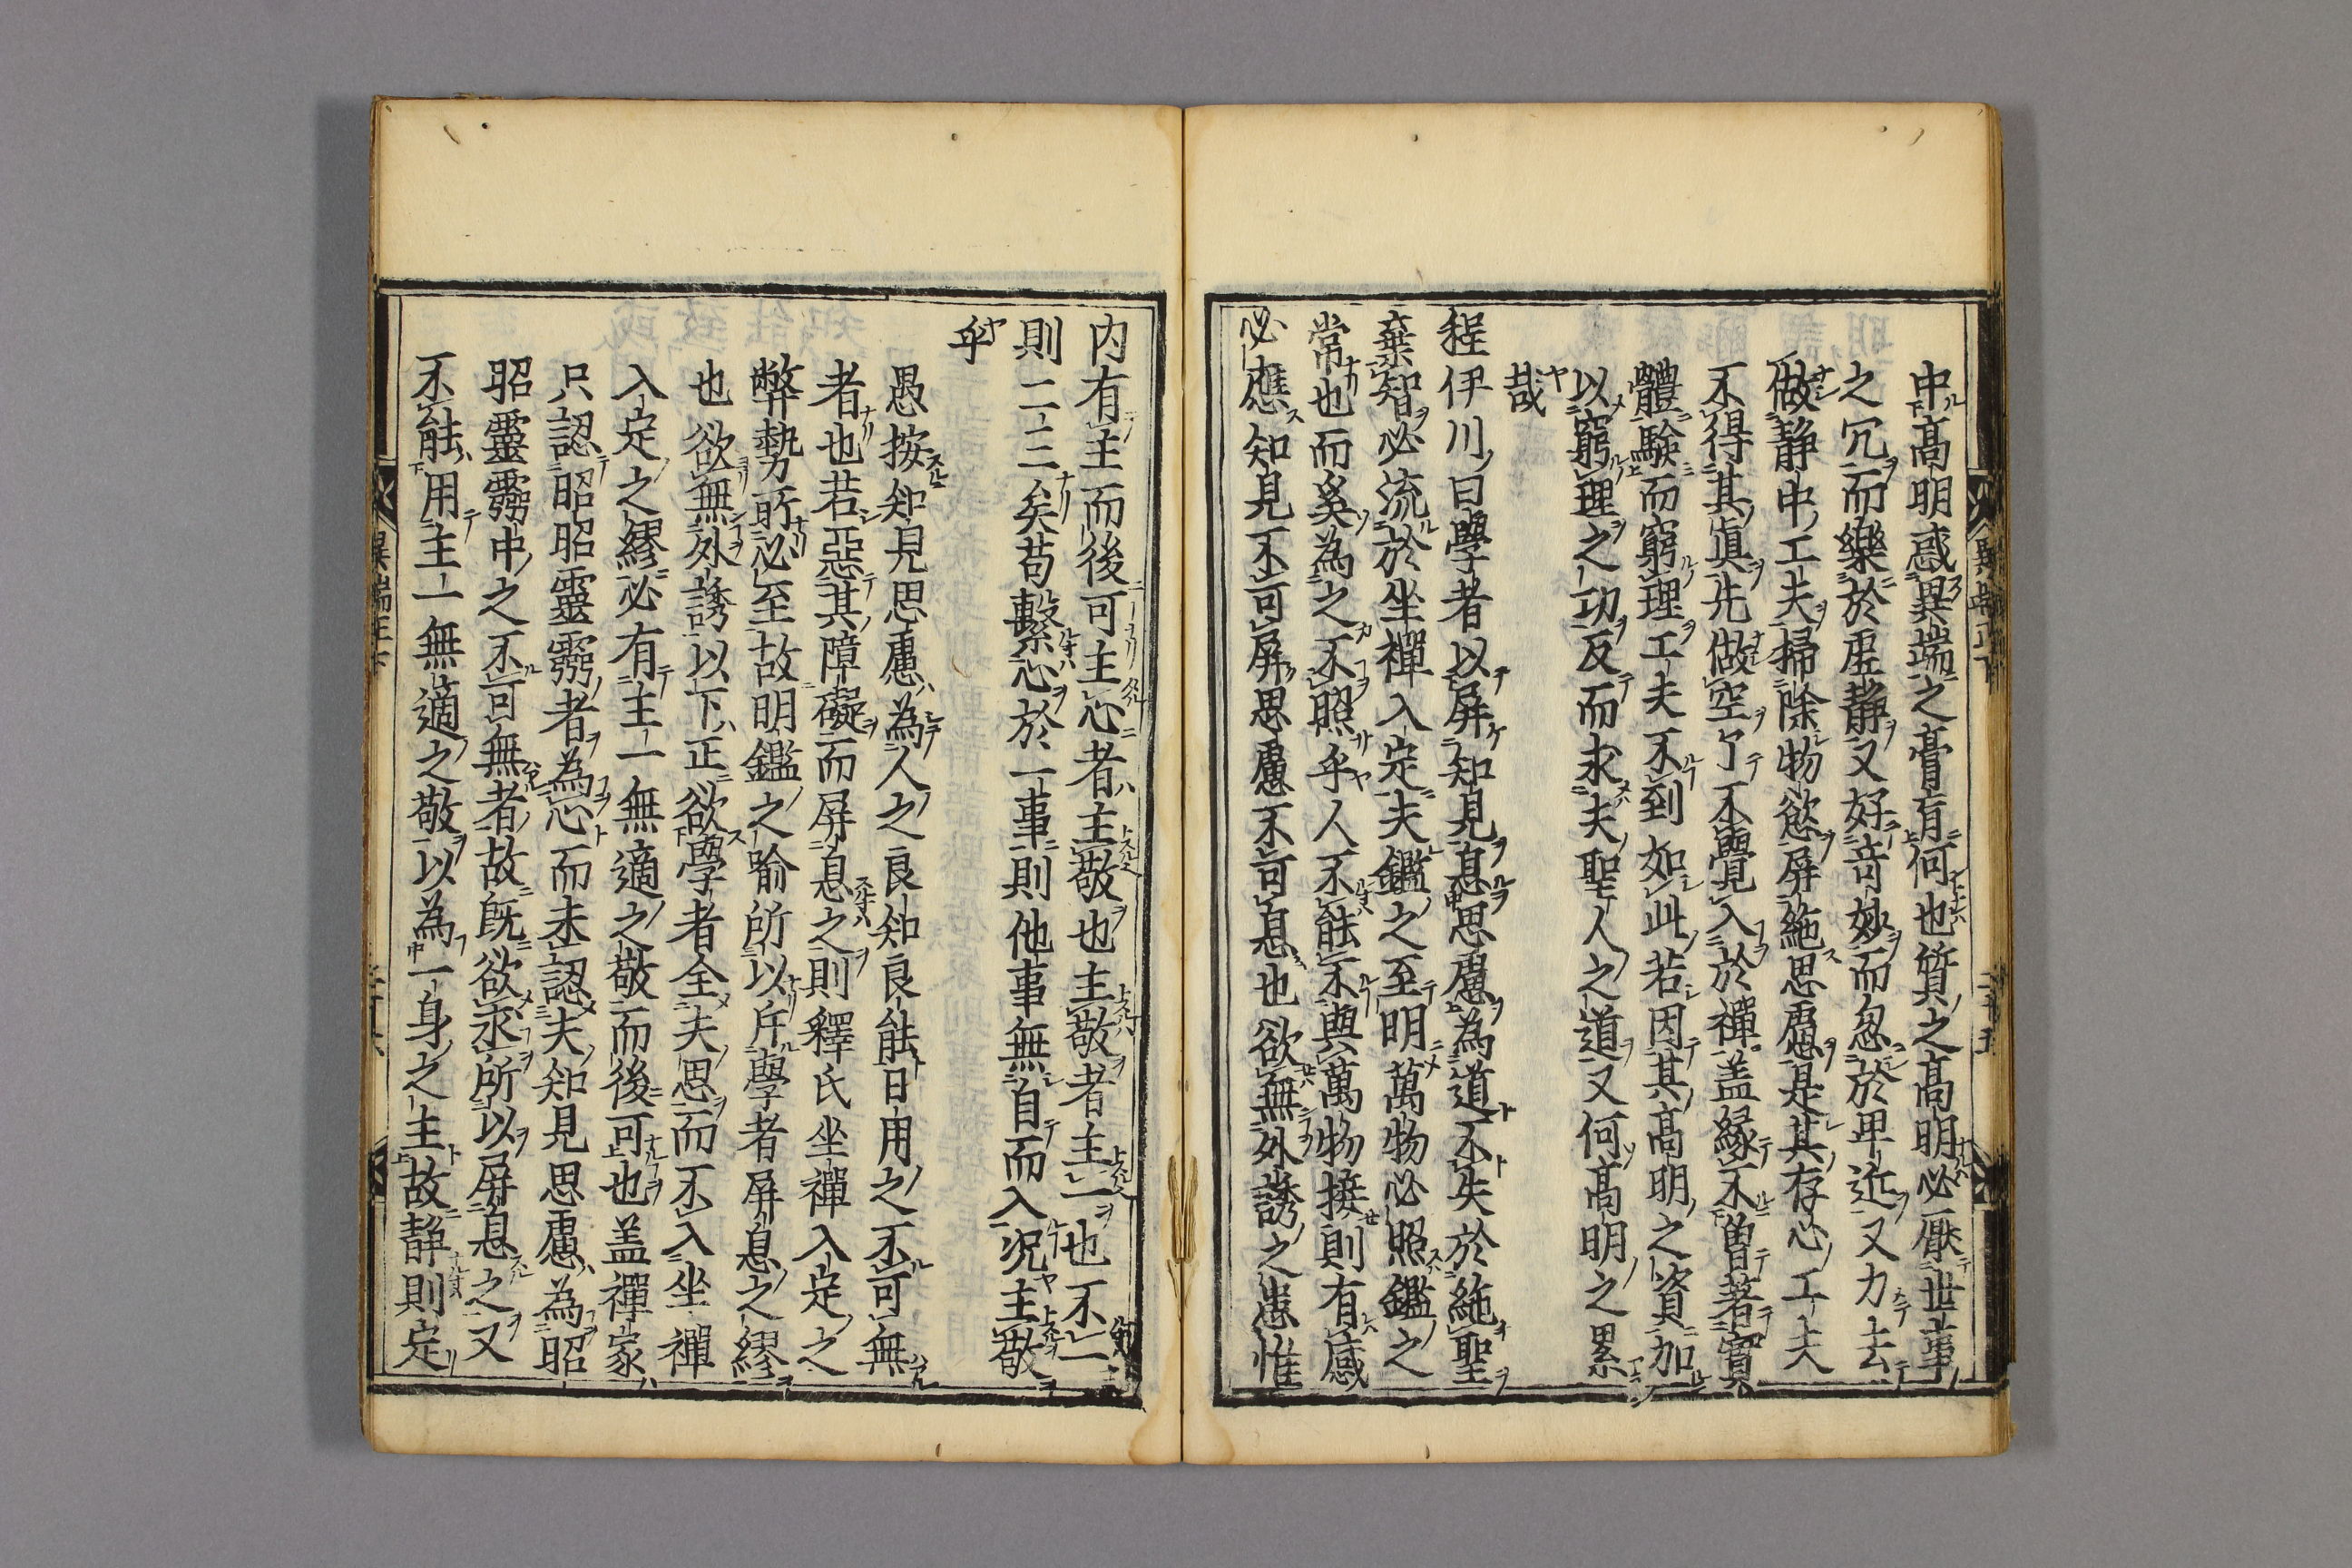 中高明惑異端之膏肓何也質之高明必厭世事
之冗而樂於虛静又好奇妙而忽於卑近又力去
做静中工夫掃除物慾屏絶思慮是其存心工夫
不得其眞先做空了不覺入於禪盖縁不曽著實
體驗而窮理工夫不到如此若因其高明之資加
以窮理之功反而求夫聖人之道又何高明之累
哉
程伊川曰學者以屏知見息思慮為道不失於絶聖
棄智必流於坐禪入定夫鑑之至明萬物必照鑑之
常也而奚為之不照乎人不能不與萬物接則有感
必應知見不可屏思慮不可息也欲無外誘之患惟
内有主而後可主心者主敬也主敬者主一也不一
則二三矣苟繫心於一事則他事無自而入況主敬
乎
愚按知見思慮為人之良知良能日用之不可無
者也若惡其障礙而屏息之則釋氏坐禪入定之
弊勢所必至故明鑑之喻所以斥學者屏息之繆
也欲無外誘以下正欲學者全夫思而不入坐禪
入定之繆必有主一無適之敬而後可也盖禪家
只認昭昭靈靈者為心而未認夫知見思慮為昭
昭靈靈中之不可無者故既欲求所以屏息之又
不能用主一無適之敬以為一身之主故静則定
異端正下